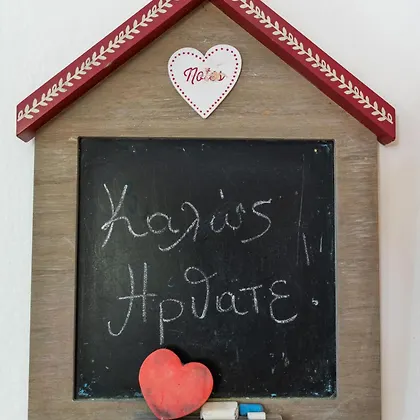 Notes
Καλώς
Ήρθατε